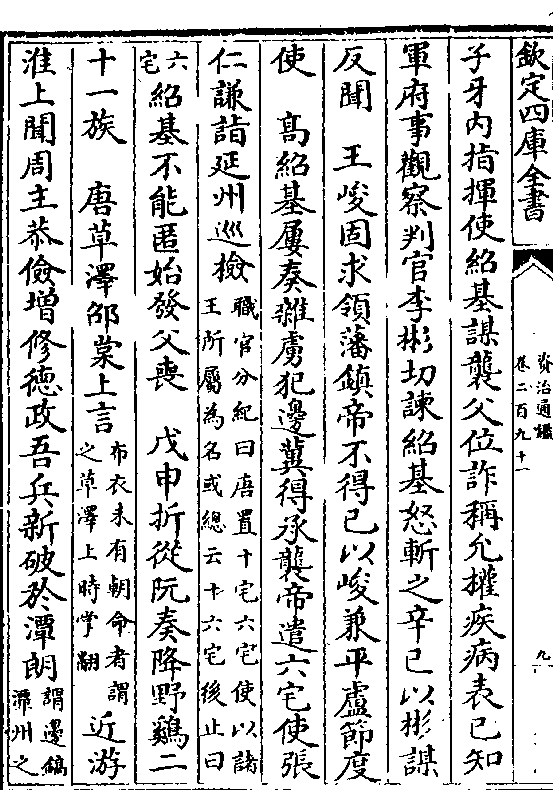 欽定四庫全書
資治通鑑
卷二百九十一
九
子牙內指揮使紹基謀襲父位詐稱允權疾病表已知
軍府事觀察判官李彬切諫紹基怒斬之辛巳以彬謀
反聞　王峻固求領藩鎮帝不得已以峻兼平盧節度
使　高紹基屢奏雜虜犯邊冀得承襲帝遣六宅使張
仁謙詣延州巡檢職官分紀曰唐置十宅六宅使以諸王所屬為名或總云十六宅後止曰
六宅紹基不能匿始發父喪　戊申折從阮奏降野雞二
十一族　唐草澤邵棠上言布衣未有朝命者謂之草澤上時掌翻近游
淮上聞周主恭儉增修德政吾兵新破於潭朗謂邊鎬潭州之